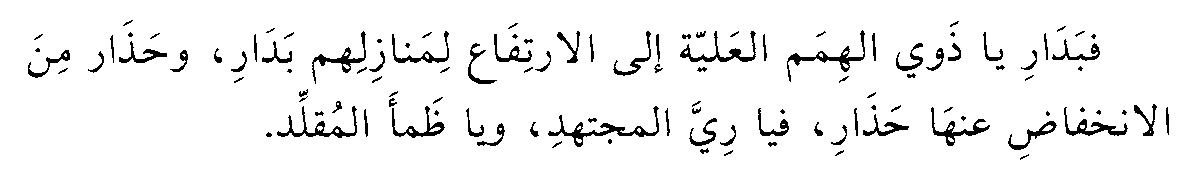 فبَدَارِ يا ذَوي الهِمَم العَليّة إلى الارتِفَاع لِمَنازِلِهم بَدَارِ، وحَذَار مِنَ
الانخفاضِ عنهَا حَذَارِ، فيا رِيَّ المجتهدِ، ويا ظَمأَ المُقلِّد.